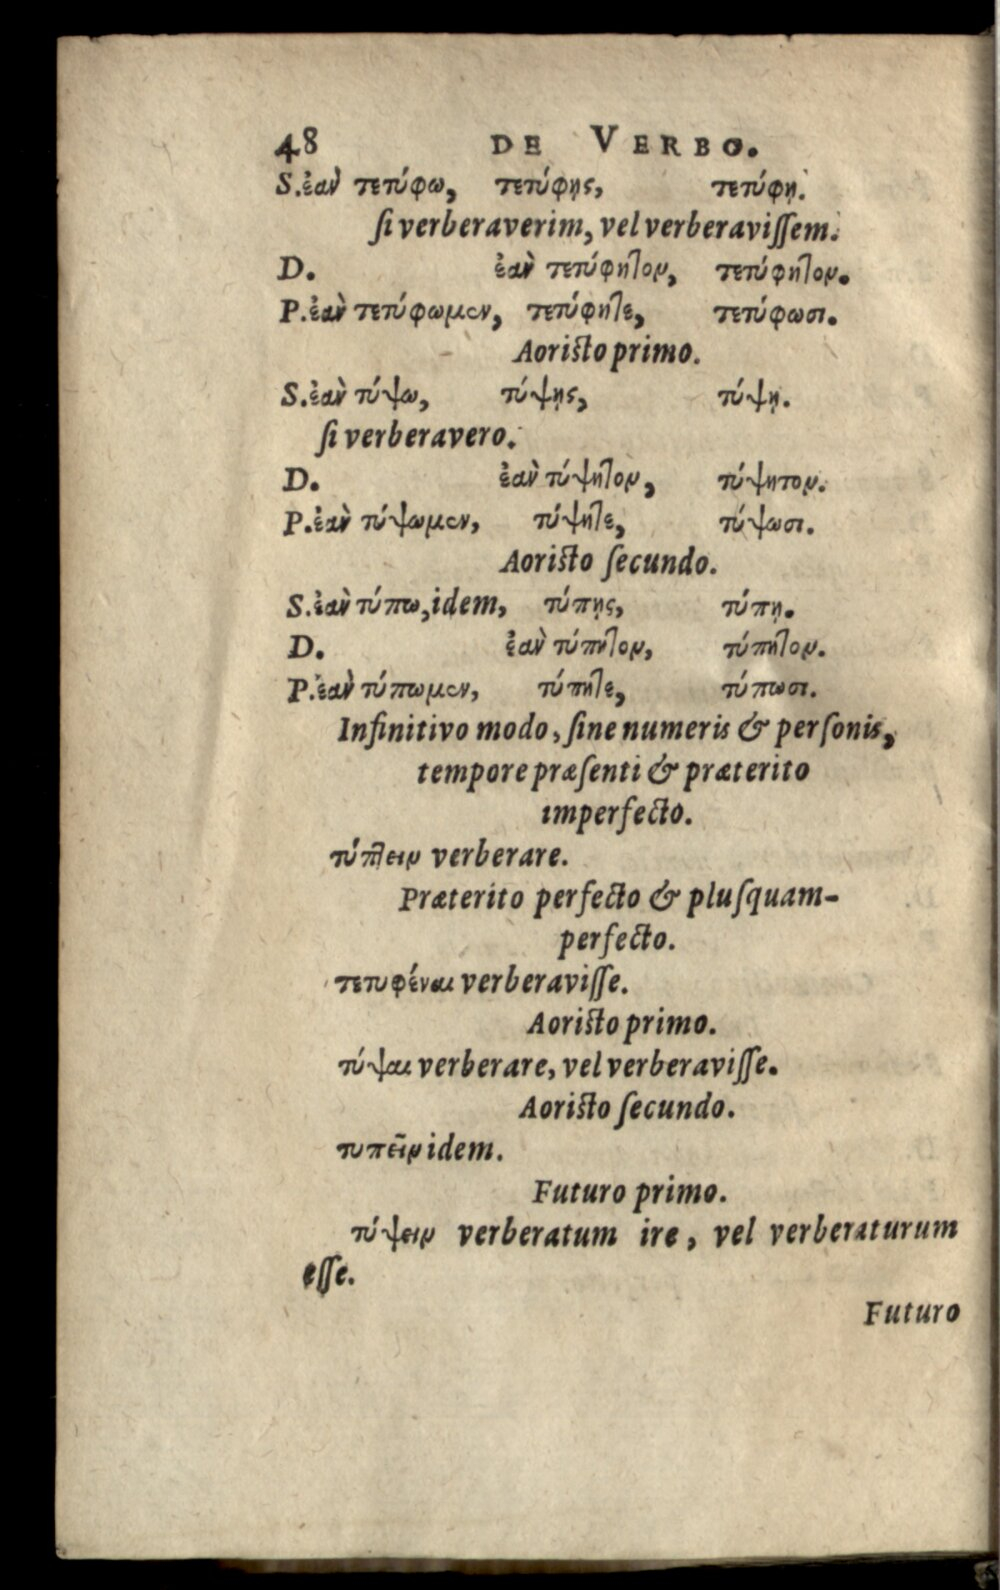 48 DE VERBO.
S. ἐὰν τετύφω, τετύφῃς, τετύφῃ.
ſi verberaverim, vel verberaviſſem.
D. ἐὰν τετύφητον, τετύφητον.
P. ἐὰν τετύφωμεν, τετύφητε, τετύφωσι.
Aoriſto primo.
S. ἐὰν τύψω, τύψῃς, τύψῃ.
ſi verberavero.
D. ἐὰν τύψητον, τύψητον.
P. ἐὰν τύψωμεν, τύψητε, τύψωσι.
Aoriſto ſecundo.
S. ἐὰν τύπω, idem, τύπῃς, τύπῃ.
D. ἐὰν τύπητον, τύπητον.
P. ἐὰν τύπωμεν, τύπητε, τύπωσι.
Infinitivo modo, ſine numeris & perſonis,
tempore præſenti & præterito
imperfecto.
τύπτειν verberare.
Præterito perfecto & pluſquam-
perfecto.
τετυφέναι verberaviſſe.
Aoriſto primo.
τύψαι verberare, vel verberaviſſe.
Aoriſto ſecundo.
τυπεῖν idem.
Futuro primo.
τύψειν verberatum ire, vel verberaturum
eſſe.
Futuro